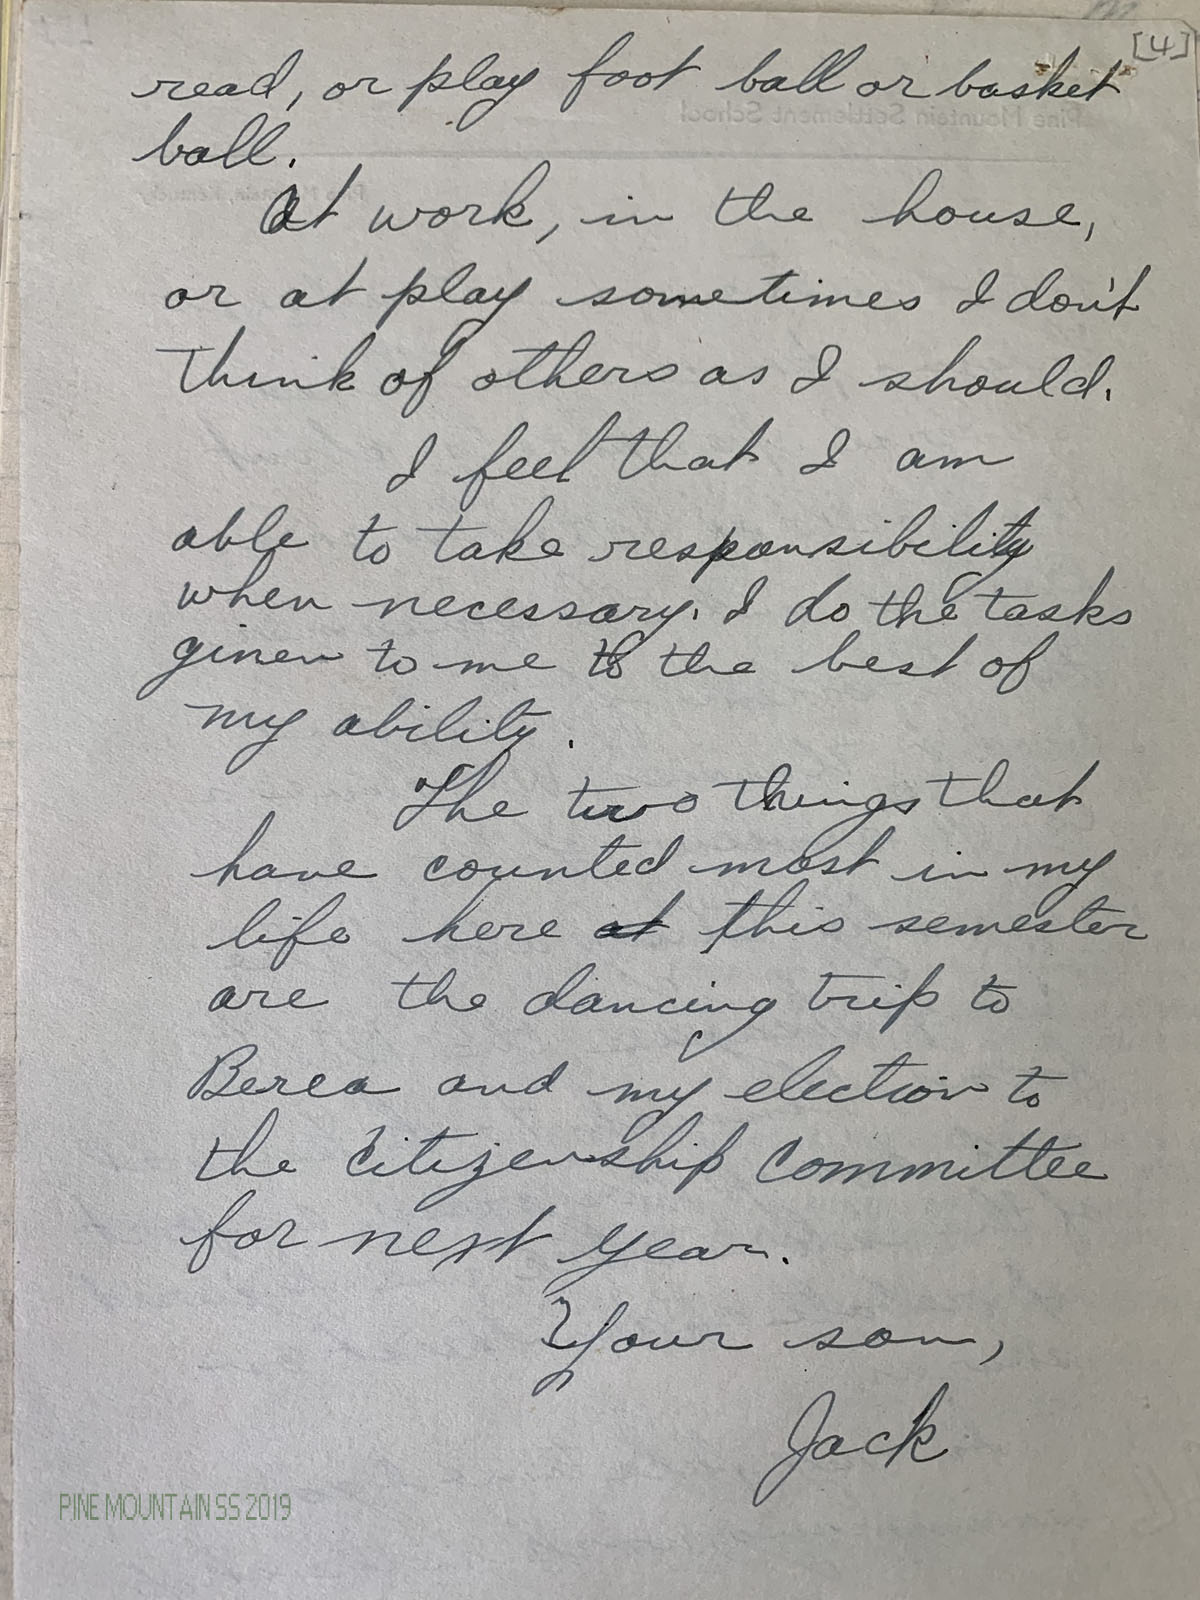 [4]
read, or play foot ball or basket
ball.
At work, in the house,
or at play sometimes I don't
think of others as I should.
I feel that I am
able to take responsibility
when necessary. I do the tasks
given to me to the best of
my ability.
The two things that
have counted most in my
life here at this semester
are the dancing trip to
Berea and my election to
the citizenship committee
for next year.
Your son,
Jack
PINE MOUNTAIN SS 2019
Pine Mountain Settlement School